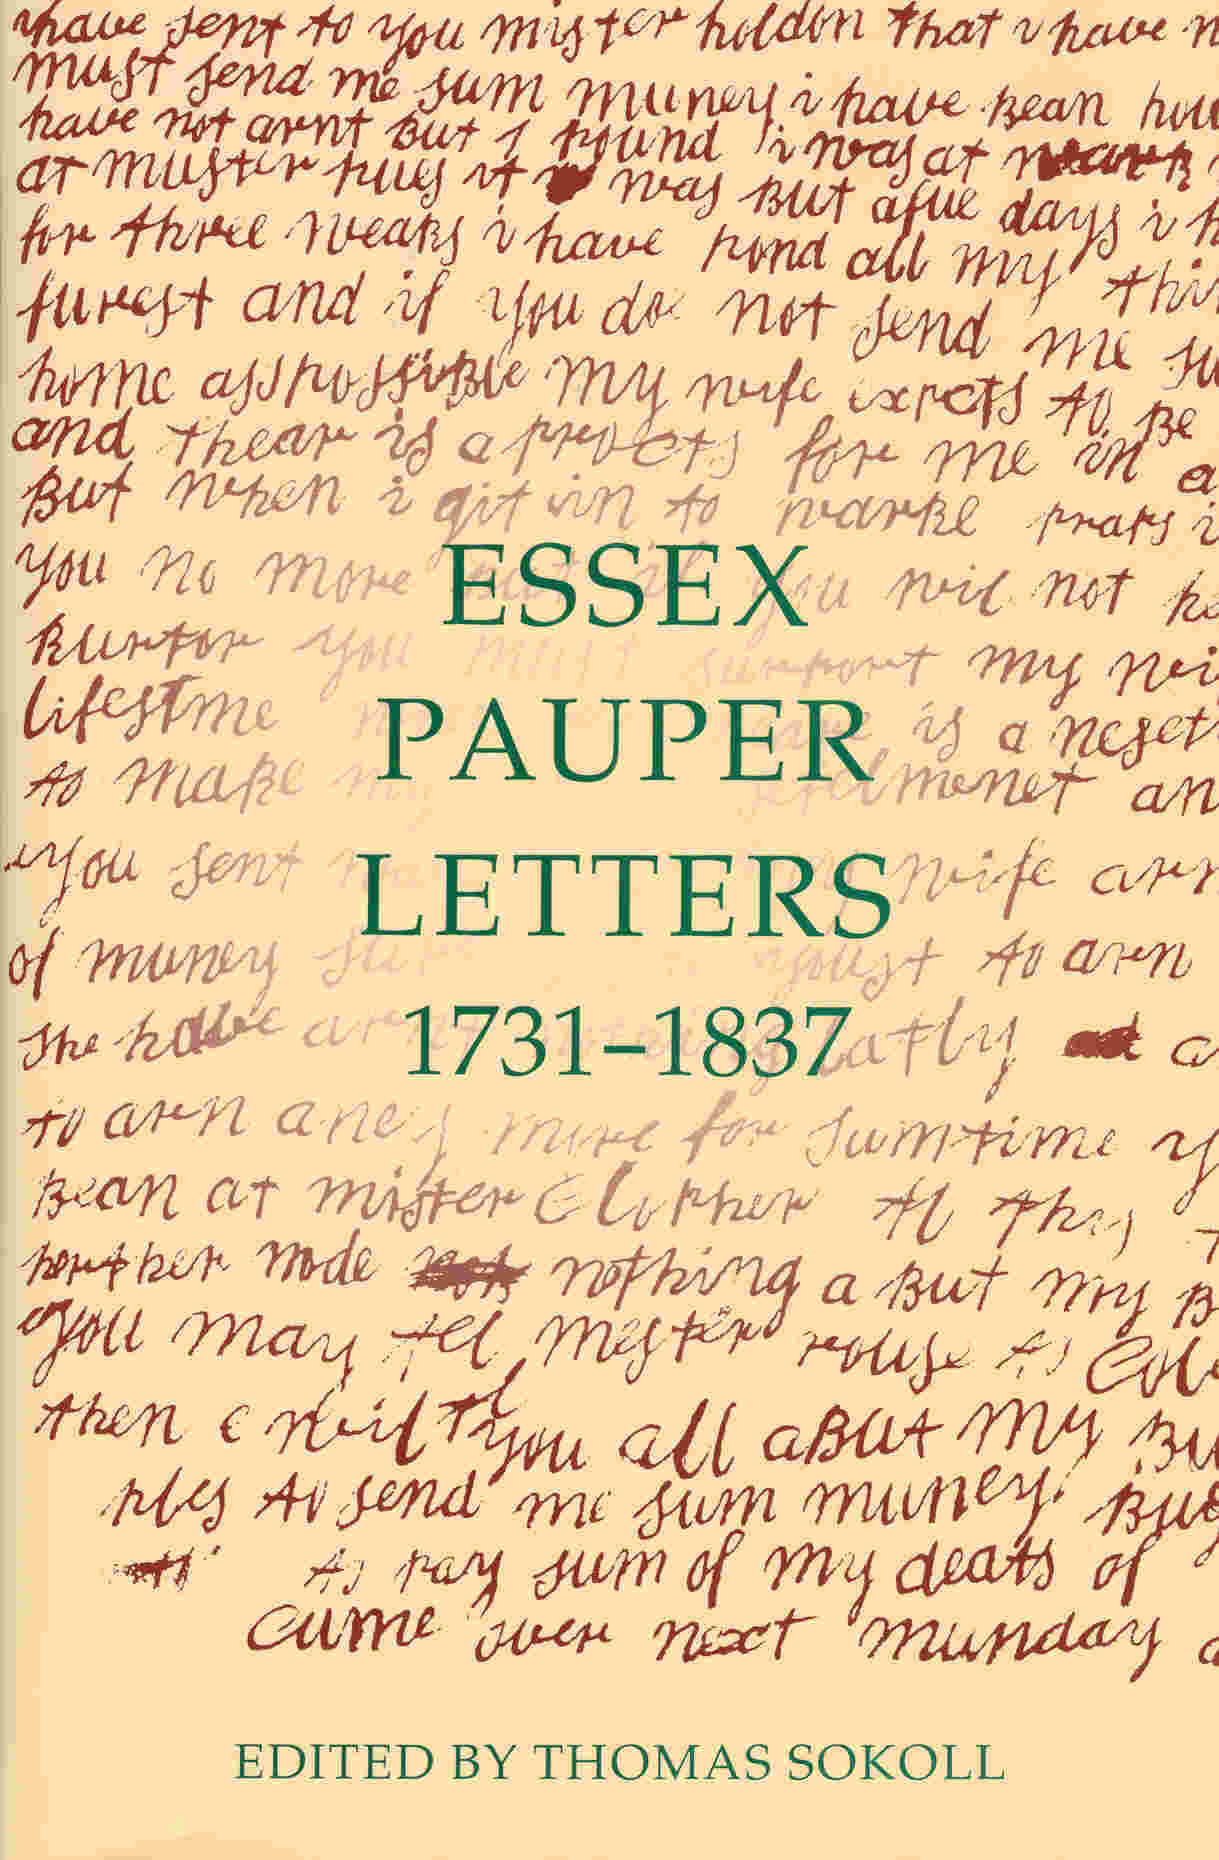 i have sent to you mister holdon that i have
must send me sum muney i have bean
have not arnt But I pound i was at
at muster pues it was But a fue days i
for three weaks i have pond all my
furest and if you do not send me
home asspossible my wife expcts to Be
and thear is a procts for me in
But when i git in to warke praps
you no more you wil not
Burfor you must surport my
lifestme is a
to make my an
you sent wife arn
of muney to arn
she have arnt latly
to arn aney more for sumtime
Bean at mister to this
nothing a But my
you may tel mester rouse to
then wil tel you all aBut my
ples to send me sum muney
to pay sum of my deats of
cume over next munday
ESSEX
PAUPER
LETTERS
1731–1837
EDITED BY THOMAS SOKOLL